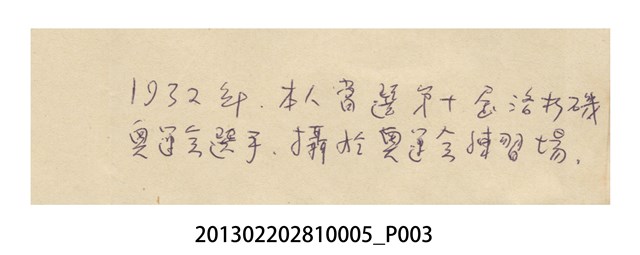 1932年.本人當選第十屆洛杉磯
奧運會選手.攝於奧運會練習場.
201302202810005_P003